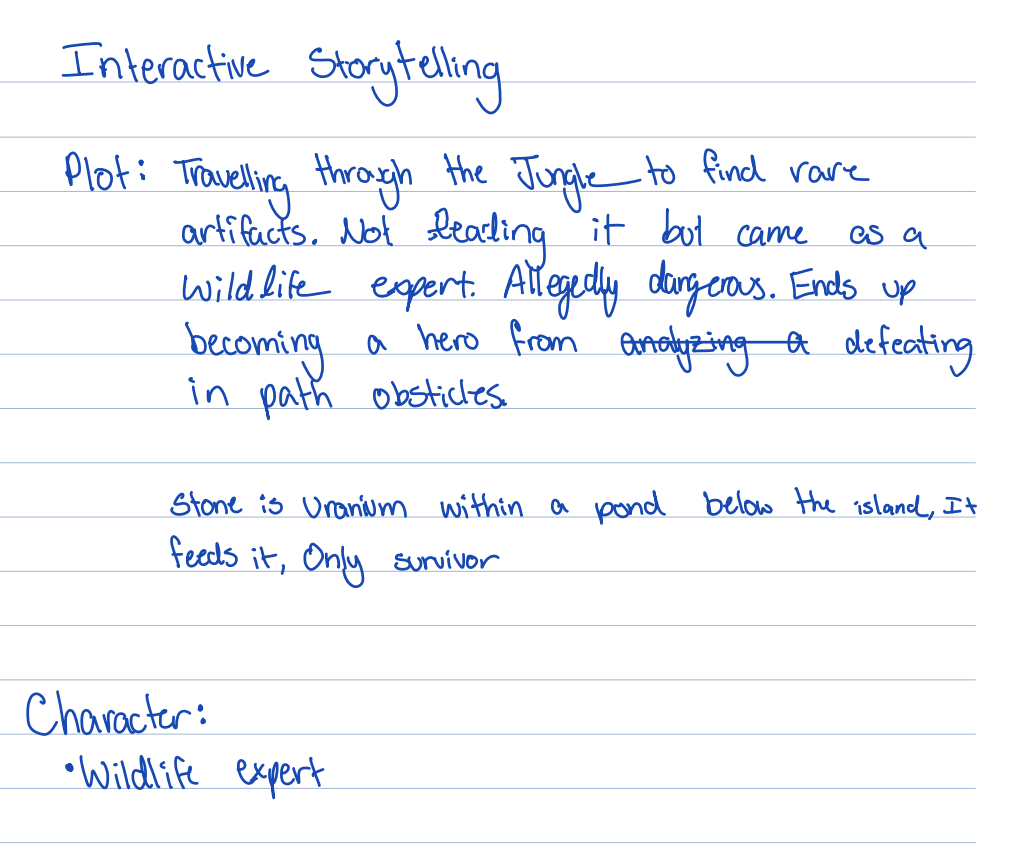 Interactive Storytelling
Plot: Travelling through the Jungle to find rare
artifacts. Not leading it but came as a
wildlife expert. Allegedly dangerous. Ends up
becoming a hero from analyzing a defeating
in path obsticles.
Stone is Uranium within a pond below the island, It
feeds it, Only survivor
Character:
•Wildlife expert